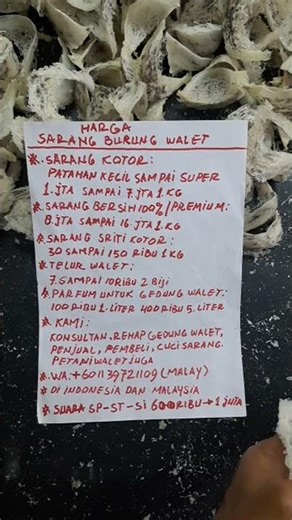 HARGA
SARANG BURUNG WALET
* SARANG KOTOR:
PATAHAN KECIL SAMPAI SUPER
1.JTA SAMPAI 7.JTA 1.KG
* SARANG BERSIH 100%/PREMIUM:
8.JTA SAMPAI 16 JTA 1.KG
* SARANG SRITI KOTOR:
30 SAMPAI 150 RIBU 1KG
* TELUR WALET:
7 SAMPAI 10 RIBU 2 BIJI
* PARFUM UNTUK GEDUNG WALET:
100 RIBU 1.LITER 400 RIBU 5.LITER
* KAMI:
KONSULTAN, REHAP GEDUNG WALET,
PENJUAL, PEMBELI, CUCI SARANG.
PETANI WALET JUGA
* WA:+601139721109 (MALAY)
* DI INDONESIA DAN MALAYSIA
* SUARA SP-ST-SI 600RIBU→1 JUTA